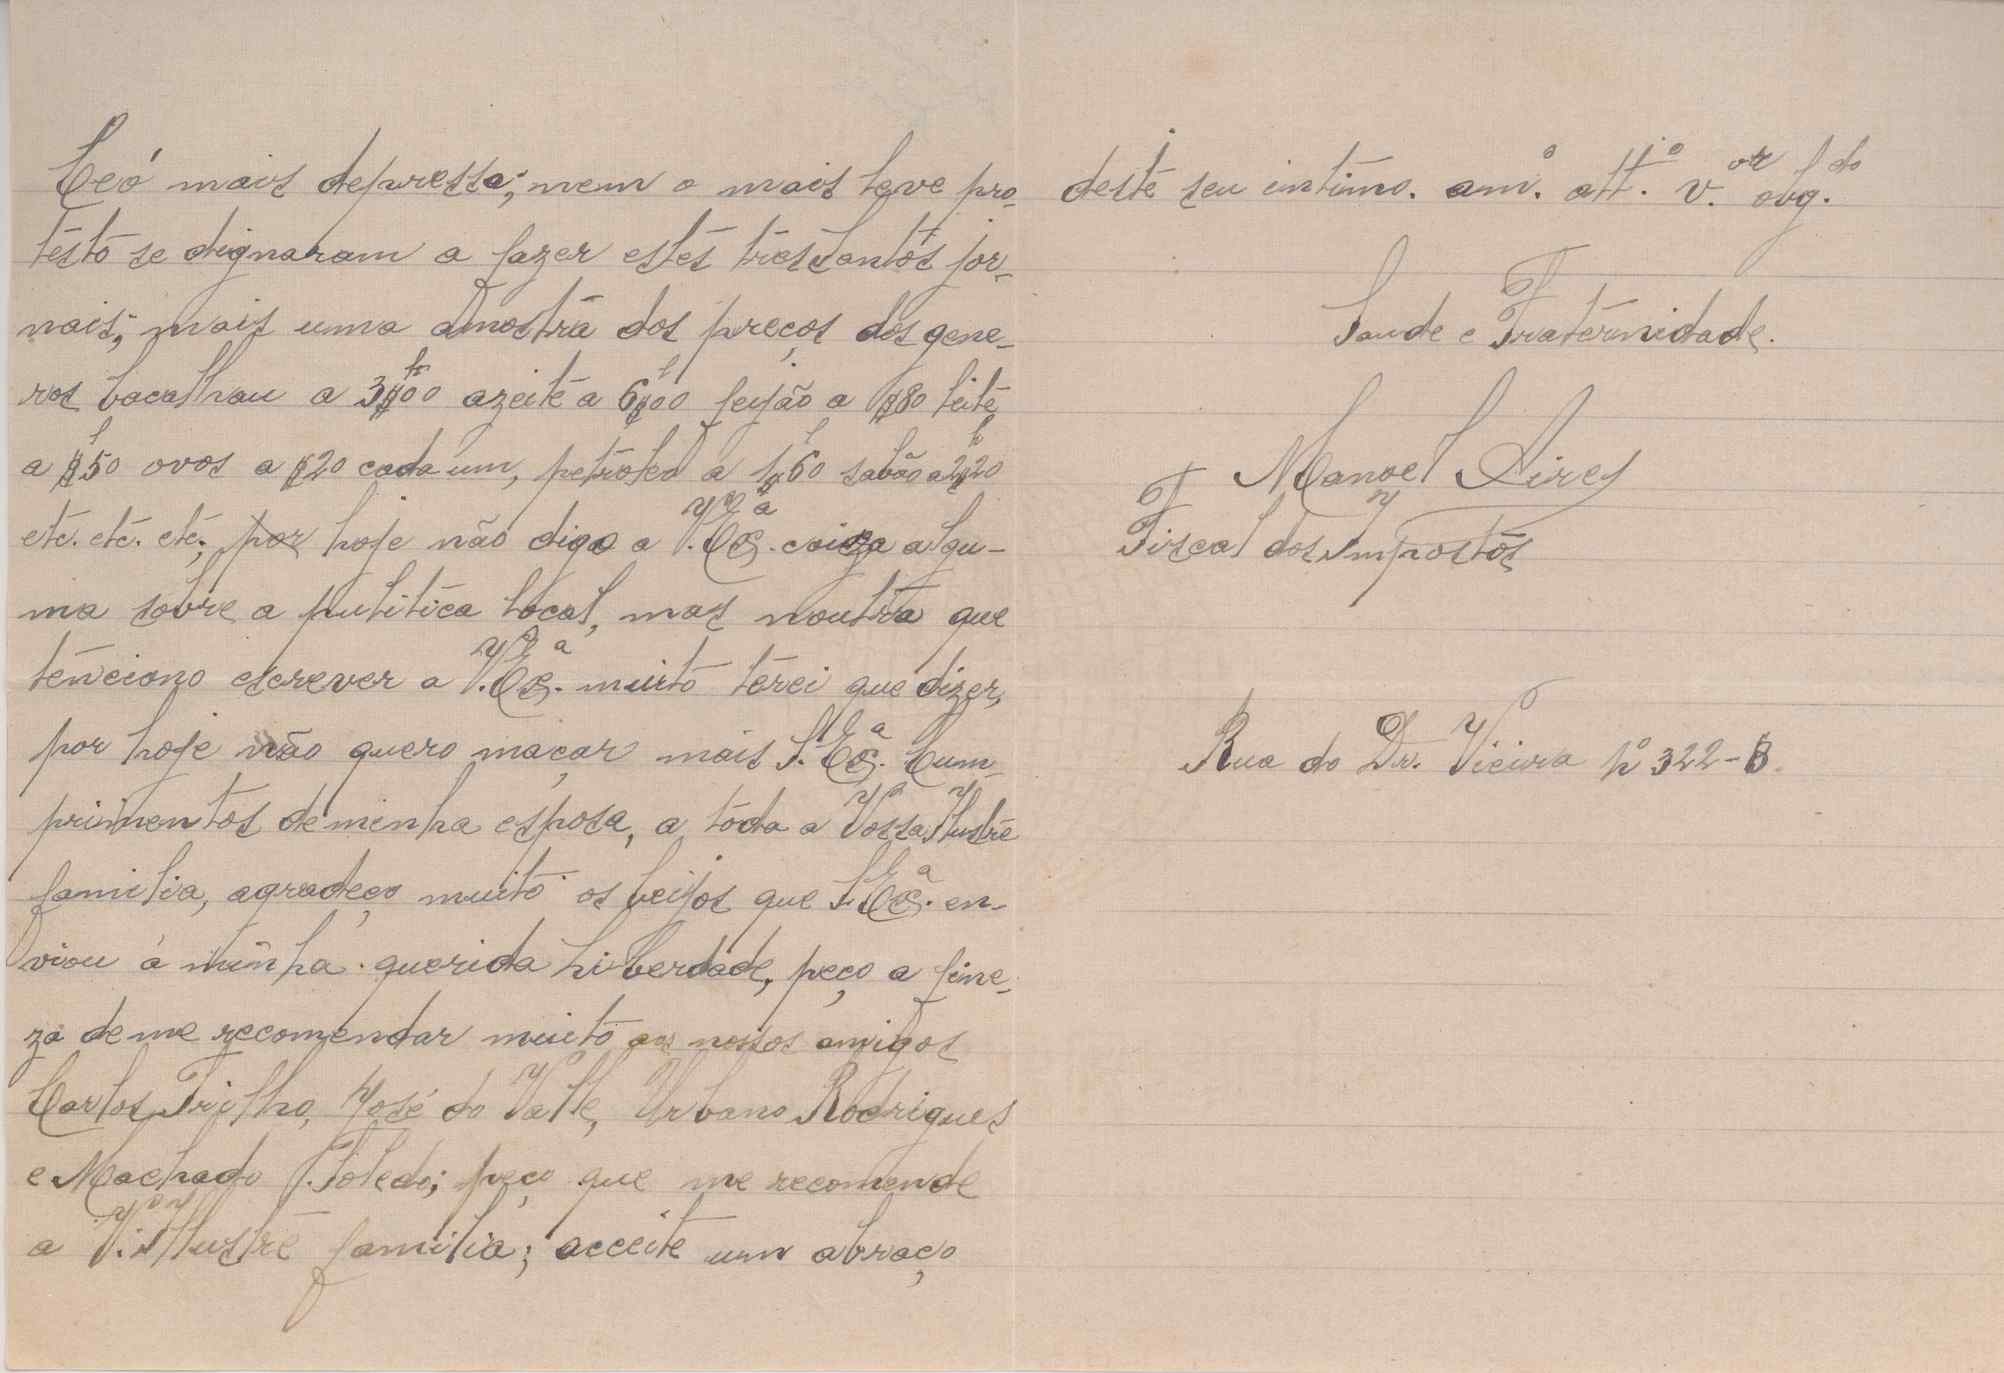 Ceó mais depressa; nem o mais leve pro-
testo se dignaram a fazer estes tres santos jor-
nais; mais uma amostra dos preços dos gene-
ros bacalhau a 3$00 azeite a 6$00 feijão a $80 leite
a $50 ovos a $20 cada um, petroleo a 1$60 sabão a 2$20
etc. etc. etc; por hoje não digo a V. Exª. coisa algu-
ma sobre a pulitica local, mas noutra que
tenciono escrever a V. Exª. muito terei que dizer,
por hoje não quero maçar mais S. Exª. Cum-
primentos de minha esposa, a toda a Vossa Ilustre
familia, agradeço muito os beijos que S. Exª. en-
viou á minha querida Liberdade, peço a fine-
za de me recomendar muito aos nossos amigos
Carlos Trilho, José do Valle, Urbano Rodrigues
e Machado Toledo; peço que me recomende
a V. Illustre familia; acceite um abraço
deste seu intimo. amº. attº. v.or obg.do
Saude e Fraternidade.
Manoel Pires
Fiscal dos Impostos
Rua do Dr. Vieira nº 322-B.